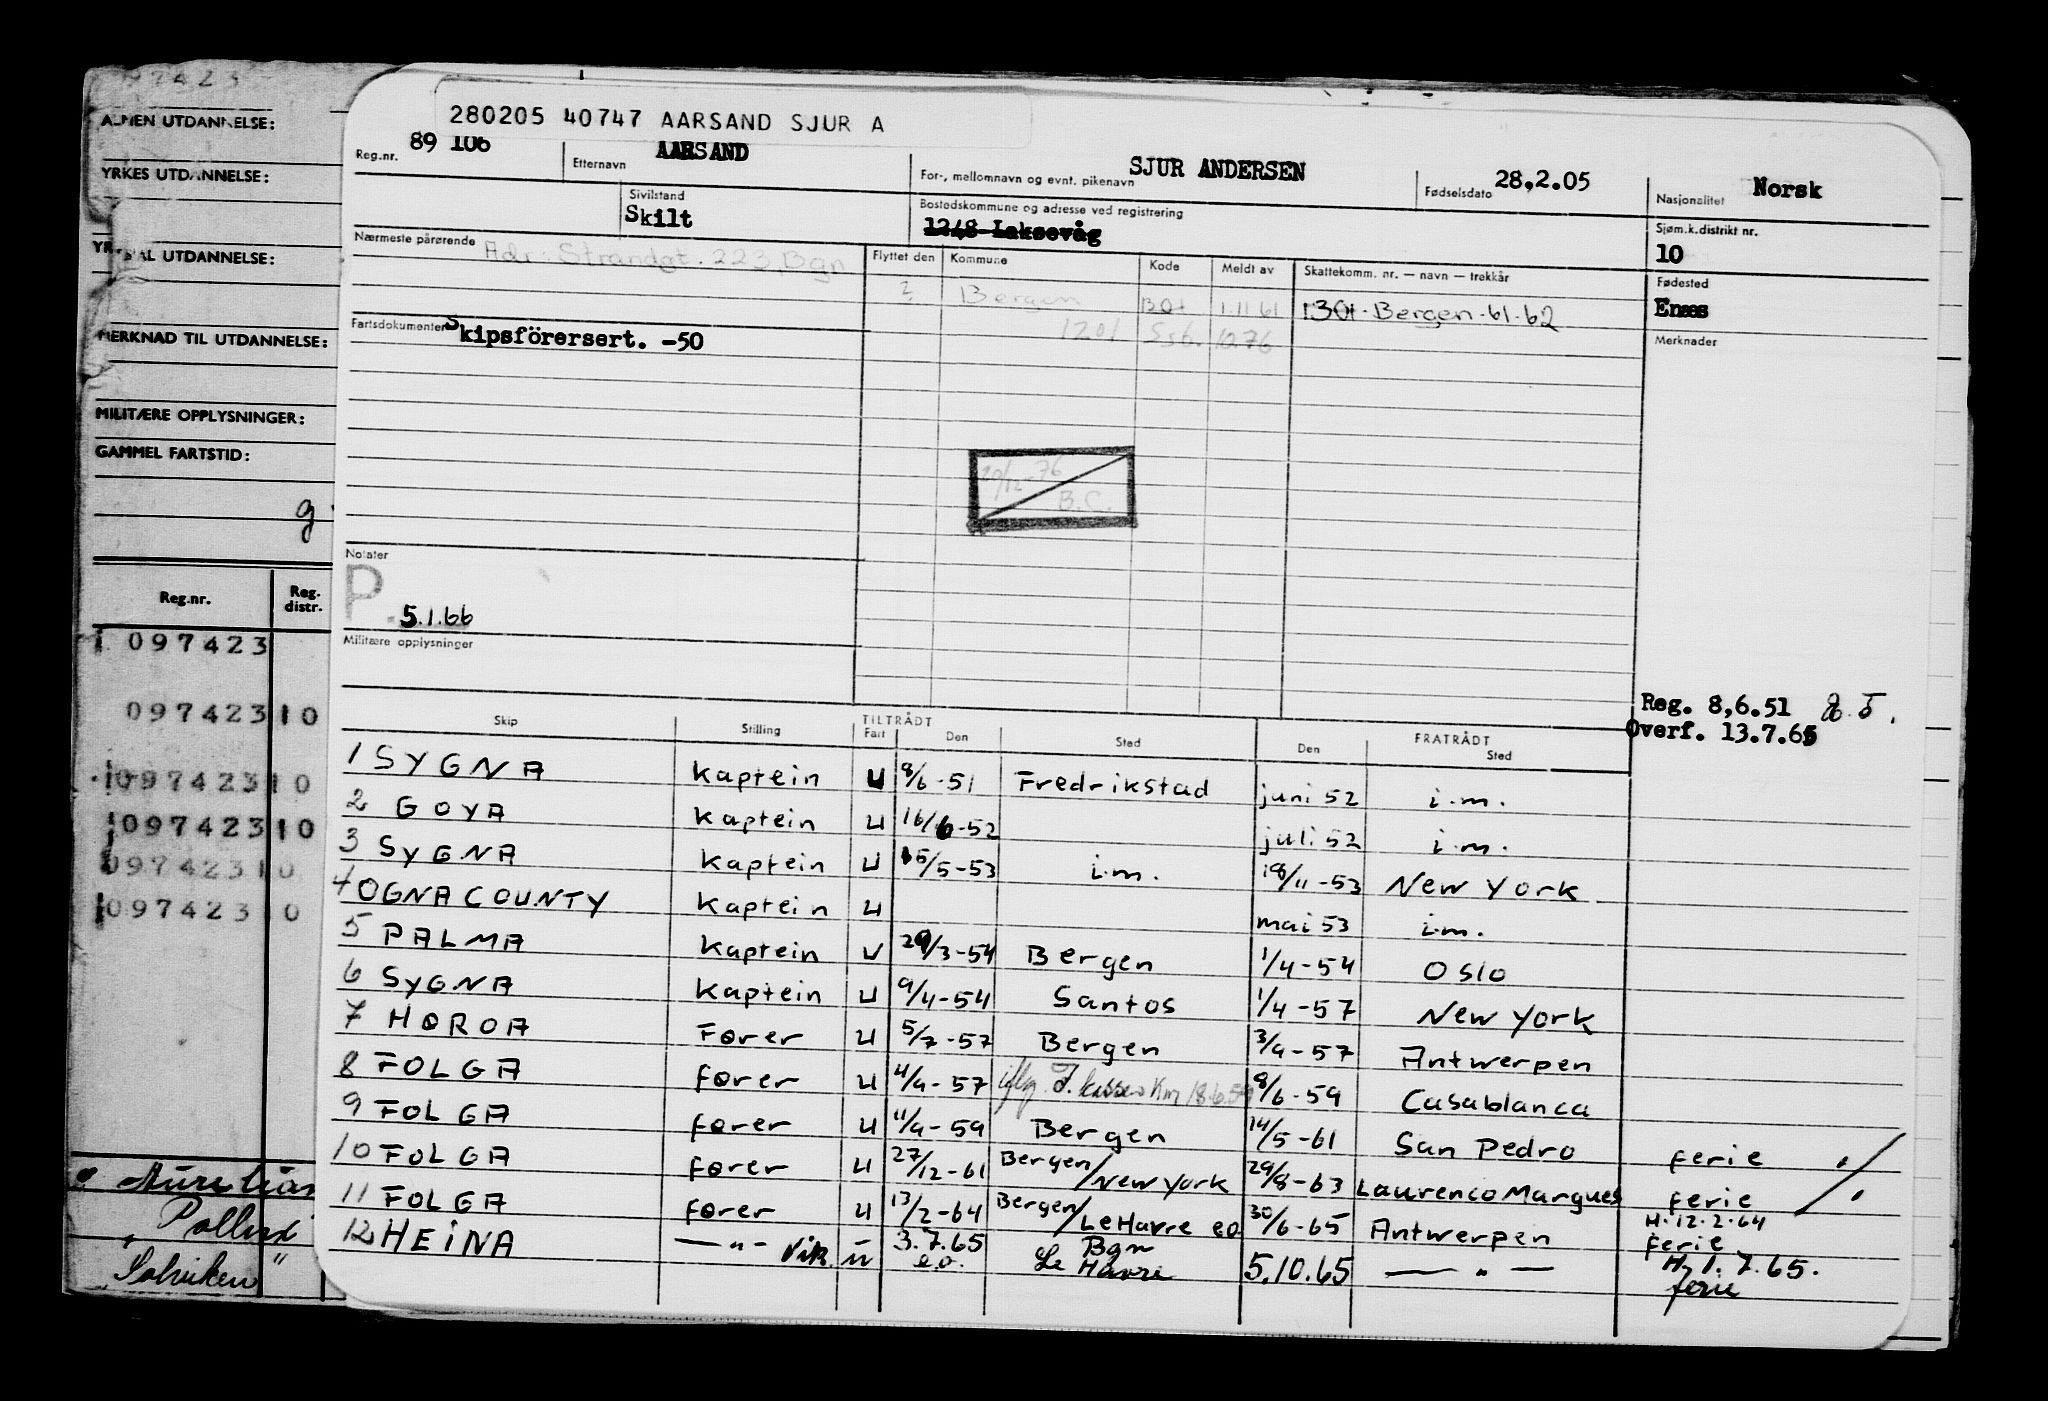 280205 40747 AARSAND SJUR A
Reg.nr. 89 106 Etternavn AARSAND For-, mellomnavn og evnt. pikenavn SJUR ANDERSEN Fødselsdato 28.2.05 Nasjonalitet Norsk
Sivilstand Skilt Bostedskommune og adresse ved registrering 1248 Laksevåg Sjøm.k.distrikt nr. 10
Nærmeste pårørende Adr: Strandgt. 223, Bgn Flyttet den Kommune Kode Meldt av Skattekomm. nr. — navn — trekkår Fødested Enæs
? Bergen 1.11 61 1301 - Bergen - 61-62
Fartsdokumenter Skipsförersert. -50 1201 Ssb. 1076 Merknader
20/12-76
B.C.
Notater
P
5.1.66
Militære opplysninger
Reg. 8,6.51
Overf. 13.7.65
Skip Stilling TILTRÅDT Fart Den Sted FRATRÅDT Den Sted
1 SYGNA Kaptein U 8/6-51 Fredrikstad juni 52 i.m.
2 GOYA Kaptein U 16/6-52 juli 52 i.m.
3 SYGNA Kaptein U 15/5-53 i.m. 18/11-53 New York
4 OGNA COUNTY Kaptein U mai 53 i.m.
5 PALMA Kaptein U 29/3-54 Bergen 1/4-54 Oslo
6 SYGNA Kaptein U 9/4-54 Santos 1/4-57 New York
7 HØRDA Fører U 5/7-57 Bergen 3/9-57 Antwerpen
8 FOLGA fører U 4/9-57 18.6.59 8/6-59 Casablanca
9 FOLGA fører U 11/9-59 Bergen 14/5-61 San Pedro ferie
10 FOLGA fører U 27/12-61 Bergen/New York 29/8-63 Laurenco Marques ferie
11 FOLGA fører U 13/2-64 Bergen/Le Havre e.o. 30/6-65 Antwerpen H. 12.2.64 ferie
12 HEINA — " — Vik. u 3.7.65 e.o. Bgn Le Havre 5.10.65 — " — H. 1.7.65. ferie
97423
ALMEN UTDANNELSE:
YRKES UTDANNELSE:
UTDANNELSE:
MERKNAD TIL UTDANNELSE:
MILITÆRE OPPLYSNINGER:
GAMMEL FARTSTID:
g
Reg.nr. Reg. distr.
097423
097423 10
097423 10
097423 10
097423 10
097423 10
Pollux
Solviken "